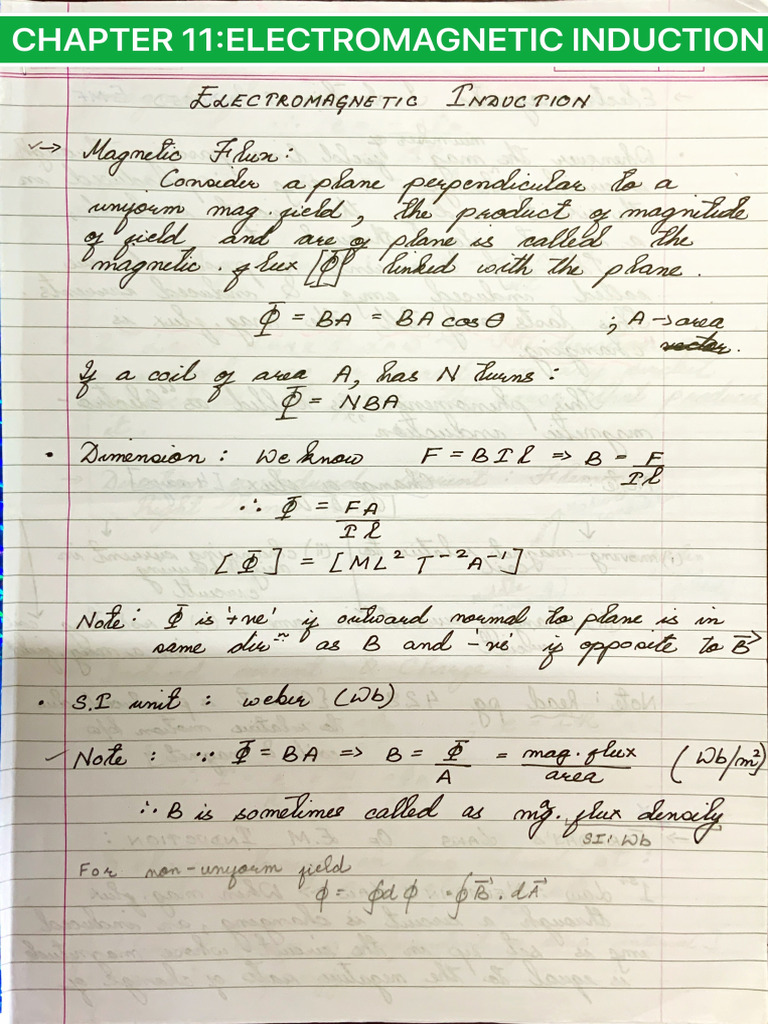 CHAPTER 11:ELECTROMAGNETIC INDUCTION
ELECTROMAGNETIC INDUCTION
→ Magnetic Flux:
Consider a plane perpendicular to a
uniform mag. field, the product of magnitude
of field and are of plane is called the
magnetic. flux [Φ] linked with the plane.
Φ = BA = BA cosθ ; A → area
vector.
If a coil of area A, has N turns:
Φ = NBA
• Dimension: We know F = BIl => B = F/Il
∴ Φ = FA/Il
[Φ] = [ML² T⁻² A⁻¹]
Note: Φ is '+ve' if outward normal to plane is in
same dirⁿ as B and -'ve' if opposite to B⃗
• S.I unit: weber (Wb)
✓ Note: ∵ Φ = BA => B = Φ/A = mag. flux/area (Wb/m²)
∴ B is sometimes called as mg. flux density
SI: Wb
For non-uniform field
ϕ = ∮dϕ = ∮B⃗.dA⃗